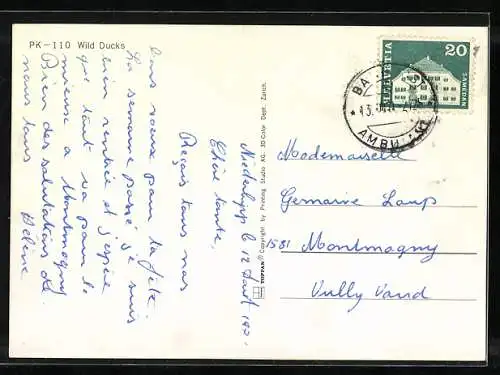 PK-110 Wild Ducks
Niederbipp le 12 Août 1970.
Chère tante,
Reçois tous nos
bons voeux pour ta fête.
La semaine passé je suis
bien rentrée et j'espère
que tout va pour le
mieux à Montmagny
Bien des salutations de
nous tous
Hélène
TOPPAN Copyright by Printing Studio AG. 3D-Color Dept. Zürich.
HELVETIA
20
SAMEDAN
BA
13.
AMBULANT
Mademoiselle
Germaine Loup
1581 Montmagny
Vully Vaud